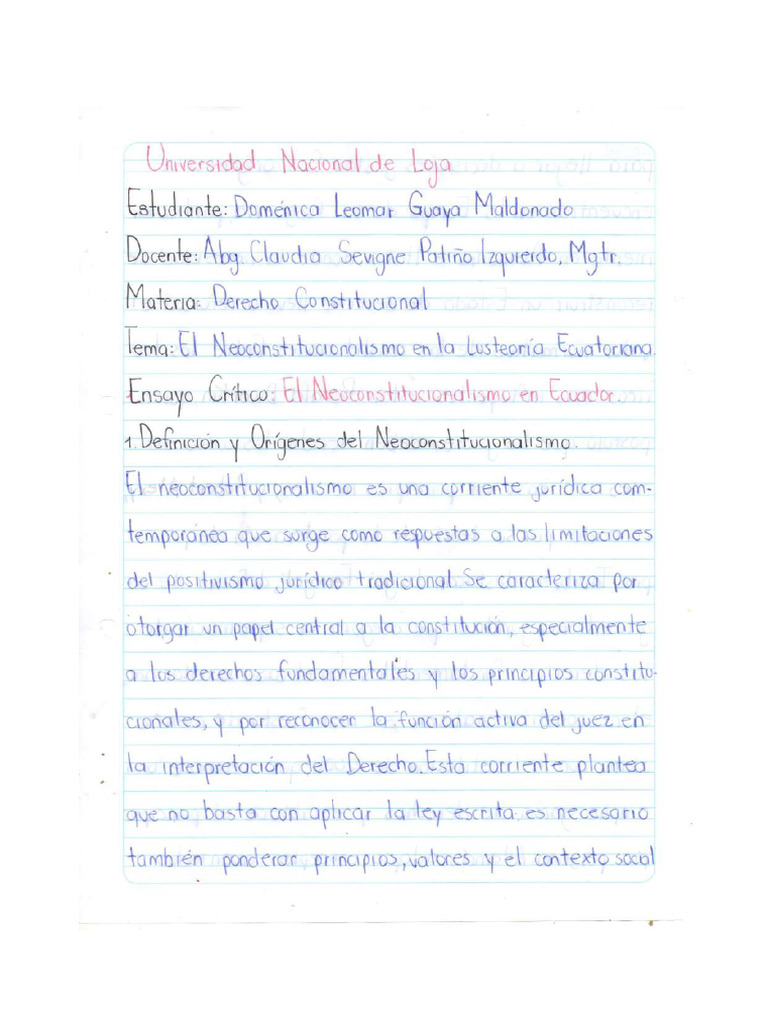 Universidad Nacional de Loja
Estudiante: Doménica Leomar Guaya Maldonado
Docente: Abg. Claudia Sevigne Patiño Izquierdo, Mgtr.
Materia: Derecho Constitucional
Tema: El Neoconstitucionalismo en la Iusteoría Ecuatoriana.
Ensayo Crítico: El Neoconstitucionalismo en Ecuador.
1. Definición y Orígenes del Neoconstitucionalismo.
El neoconstitucionalismo es una corriente jurídica com-
temporánea que surge como respuestas a las limitaciones
del positivismo jurídico tradicional. Se caracteriza por
otorgar un papel central a la constitución, especialmente
a los derechos fundamentales y los principios constitu-
cionales, y por reconocer la función activa del juez en
la interpretación del Derecho. Esta corriente plantea
que no basta con aplicar la ley escrita, es necesario
también ponderar principios, valores y el contexto social